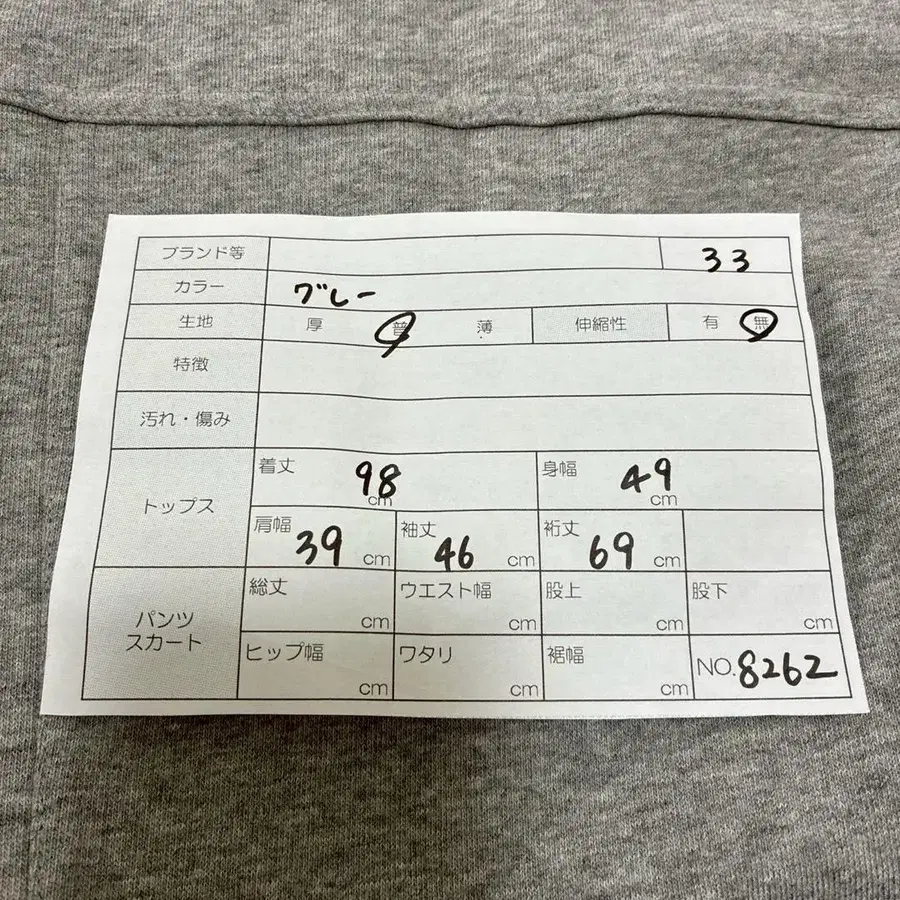 ブランド等 33
カラー グレー
生地 厚 普 薄 伸縮性 有 無
特徴
汚れ・傷み
トップス
着丈 98 cm 身幅 49 cm
肩幅 39 cm 袖丈 46 cm 裄丈 69 cm
パンツ
スカート
総丈 cm ウエスト幅 cm 股上 cm 股下 cm
ヒップ幅 cm ワタリ cm 裾幅 cm NO.8262